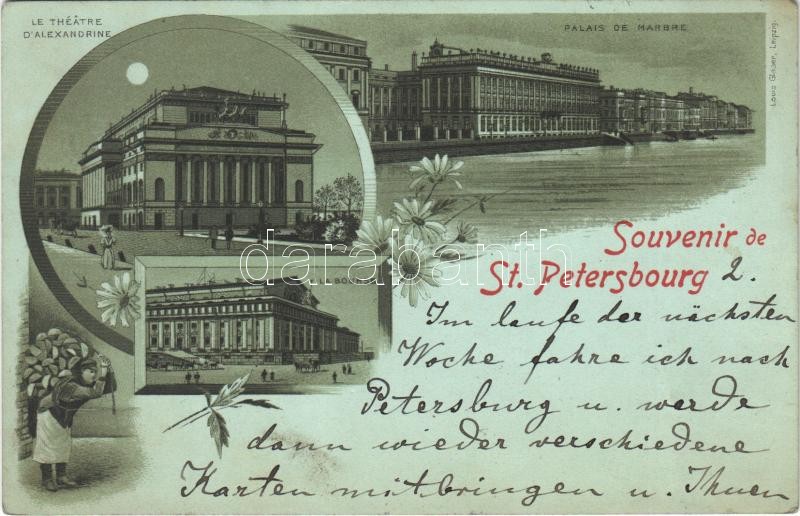 LE THÉÂTRE
D'ALEXANDRINE
PALAIS DE MARBRE
Louis Glaser, Leipzig.
darabanth
Souvenir de
St. Petersbourg 2.
Im laufe der nächsten
Woche fahre ich nach
Petersburg u. werde
dann wieder verschiedene
Karten mitbringen u. Ihnen